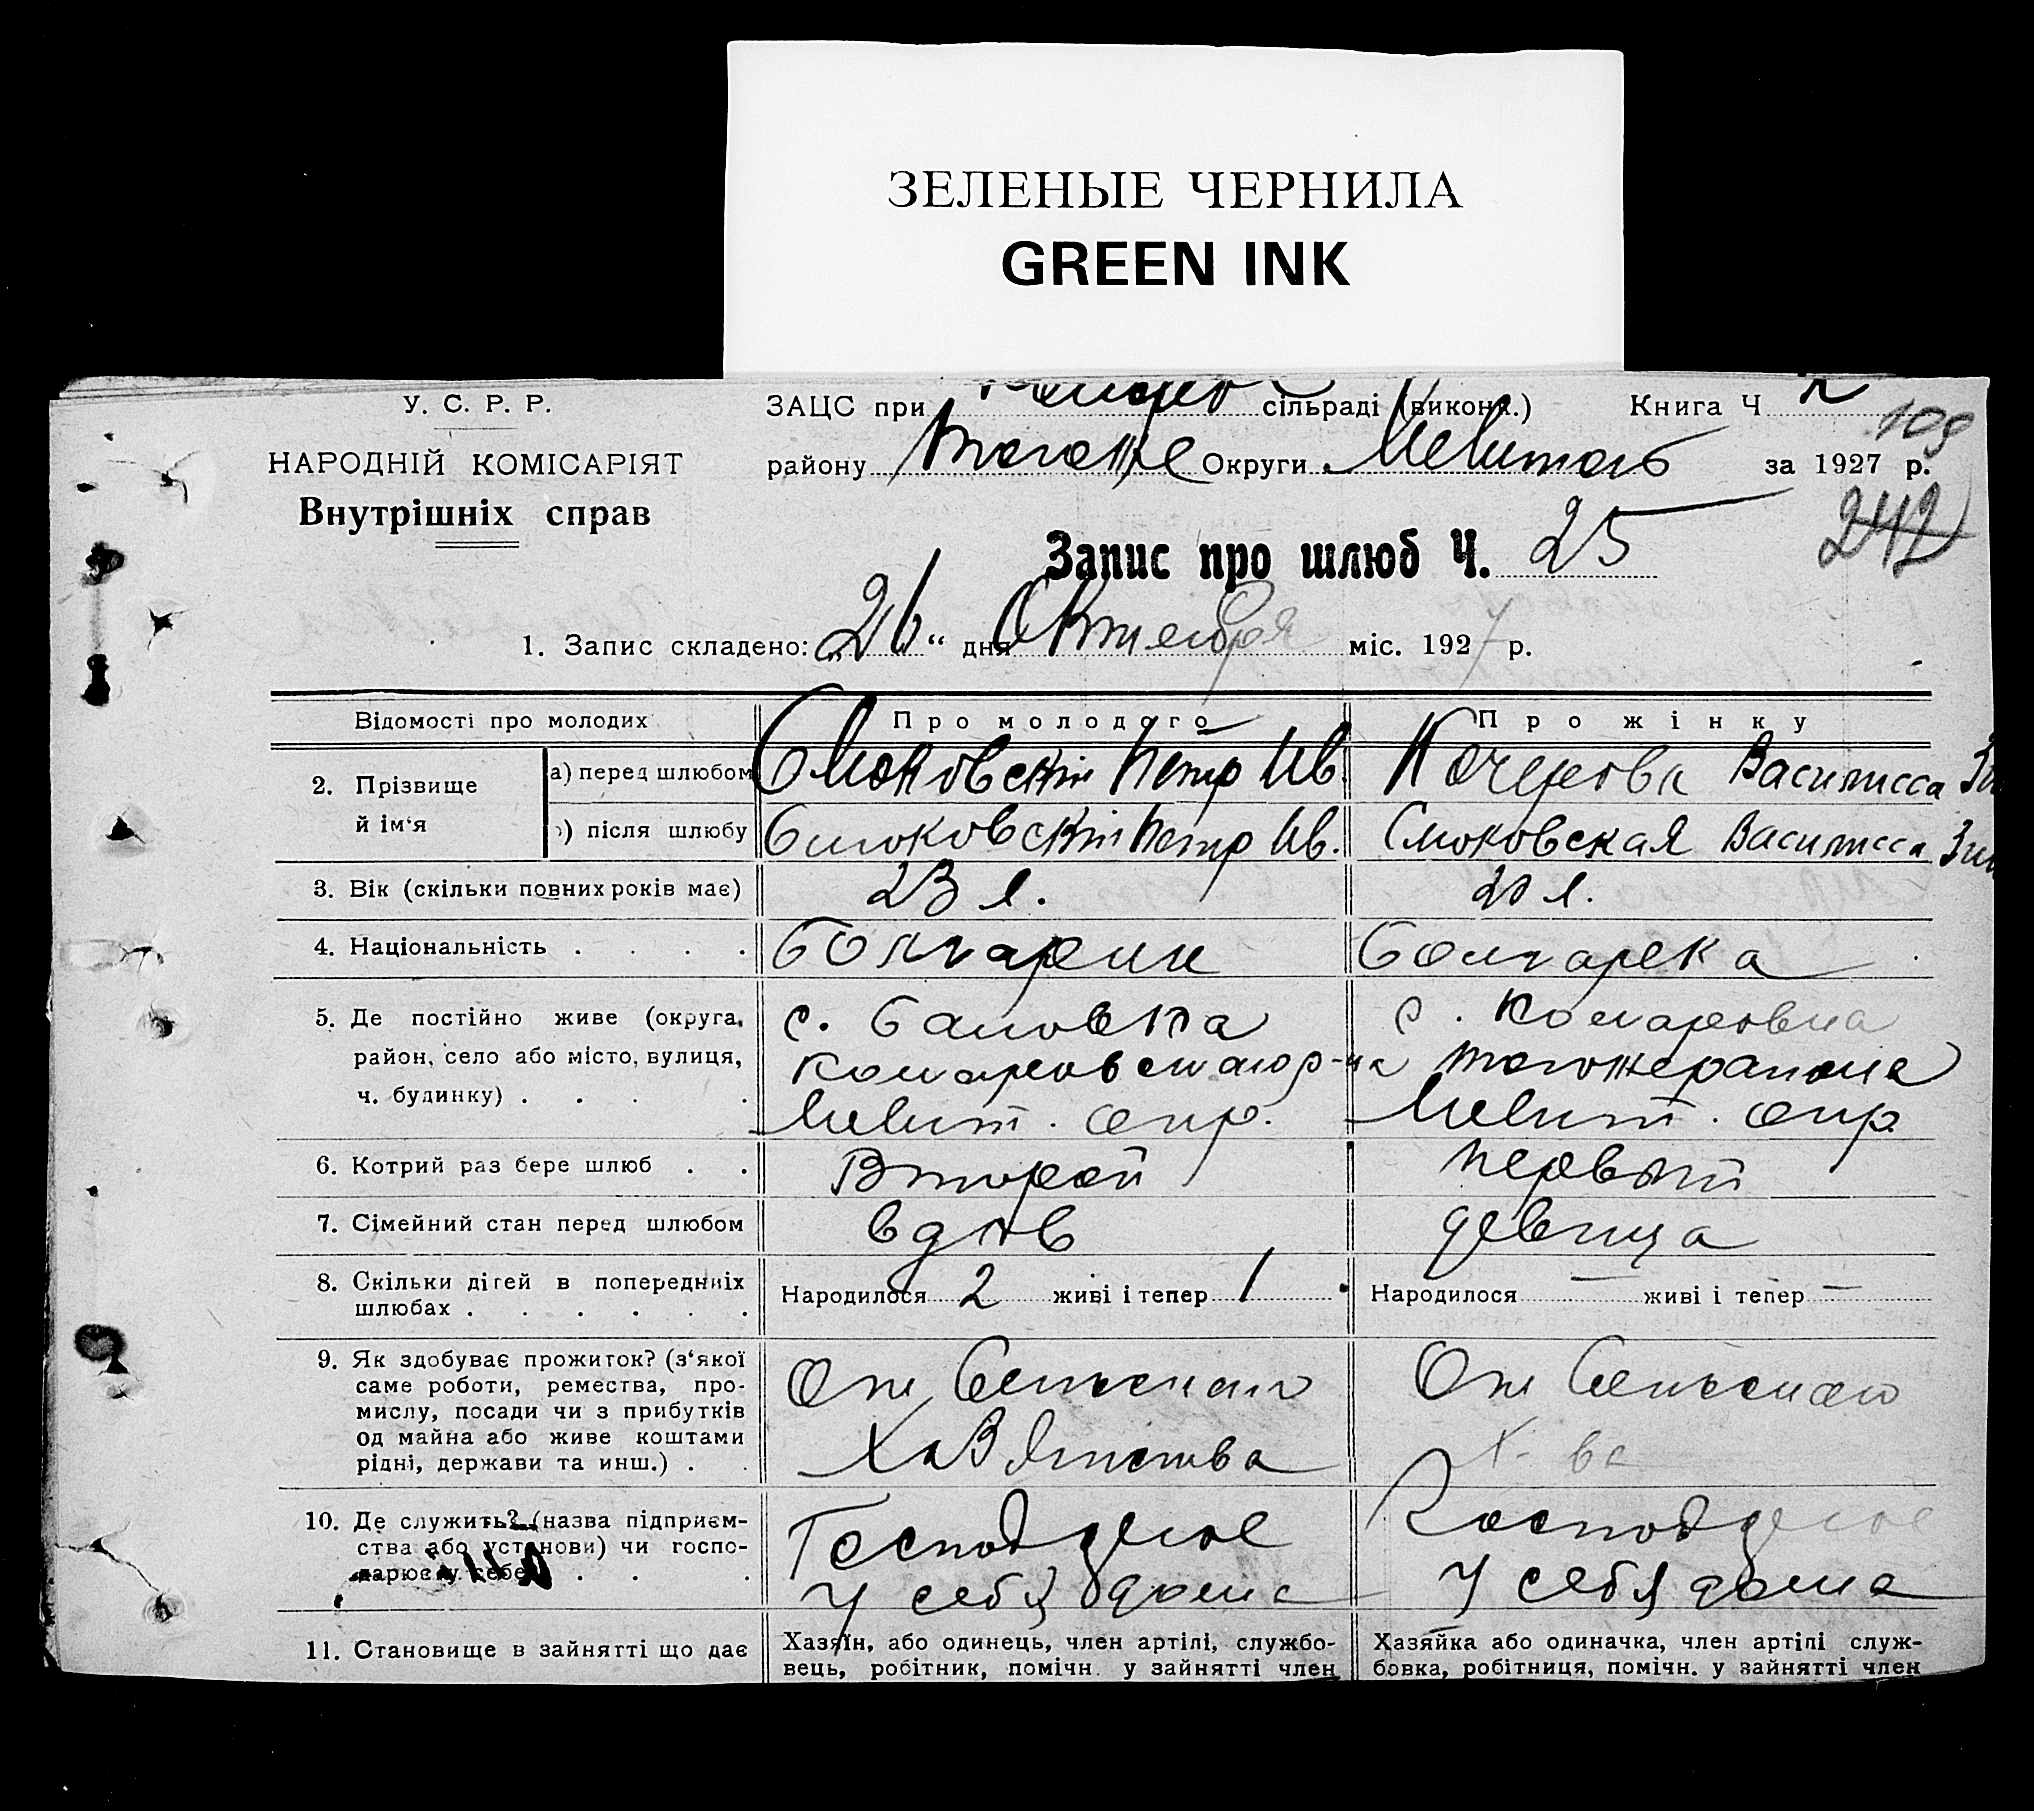 ЗЕЛЕНЫЕ ЧЕРНИЛА
GREEN INK
У. С. Р. Р.
НАРОДНІЙ КОМІСАРІЯТ
Внутрішніх справ
ЗАЦС при сільраді (викона.) Книга Ч
109
району Тогоже Округи Мелитоп за 1927 р.
242
Запис про шлюб Ч. 25
1. Запис складено: „26“ дня Октября міс. 1927 р.
Відомості про молодих Про молодого Про жінку
2. Прізвище й ім'я
а) перед шлюбом Смоковскій Петр Ив. Кочерова Василисса
) після шлюбу Смоковскій Петр Ив. Смоковская Василисса
3. Вік (скільки повних років має) 23 л. 20 л.
4. Національність . . . . Болгарин Болгарка
5. Де постійно живе (округа, район, село або місто, вулиця, ч. будинку) . . . .
с.
р-на
Мелит. окр.
с.
тогоже района
Мелит. окр.
6. Котрий раз бере шлюб . . Второй Первый
7. Сімейний стан перед шлюбом вдов девица
8. Скільки дітей в попередніх шлюбах . . . . . . Народилося 2 живі і тепер 1 Народилося — живі і тепер —
9. Як здобуває прожиток? (з'якої
саме роботи, ремества, про-
мислу, посади чи з прибутків
од майна або живе коштами
рідні, держави та инш.) . .
От Сельскаго
Хозяйства
От Сельскаго
Х-ва
10. Де служить? (назва підприєм-
ства або установи) чи госпо-
дарює у себе . . .
Господарюе
у себя дома
Господарюе
у себя дома
11. Становище в зайнятті що дає
Хазяїн, або одинець, член артілі, службо-
вець, робітник, помічн. у зайнятті член
Хазяйка або одиначка, член артілі служ-
бовка, робітниця, помічн. у зайнятті член